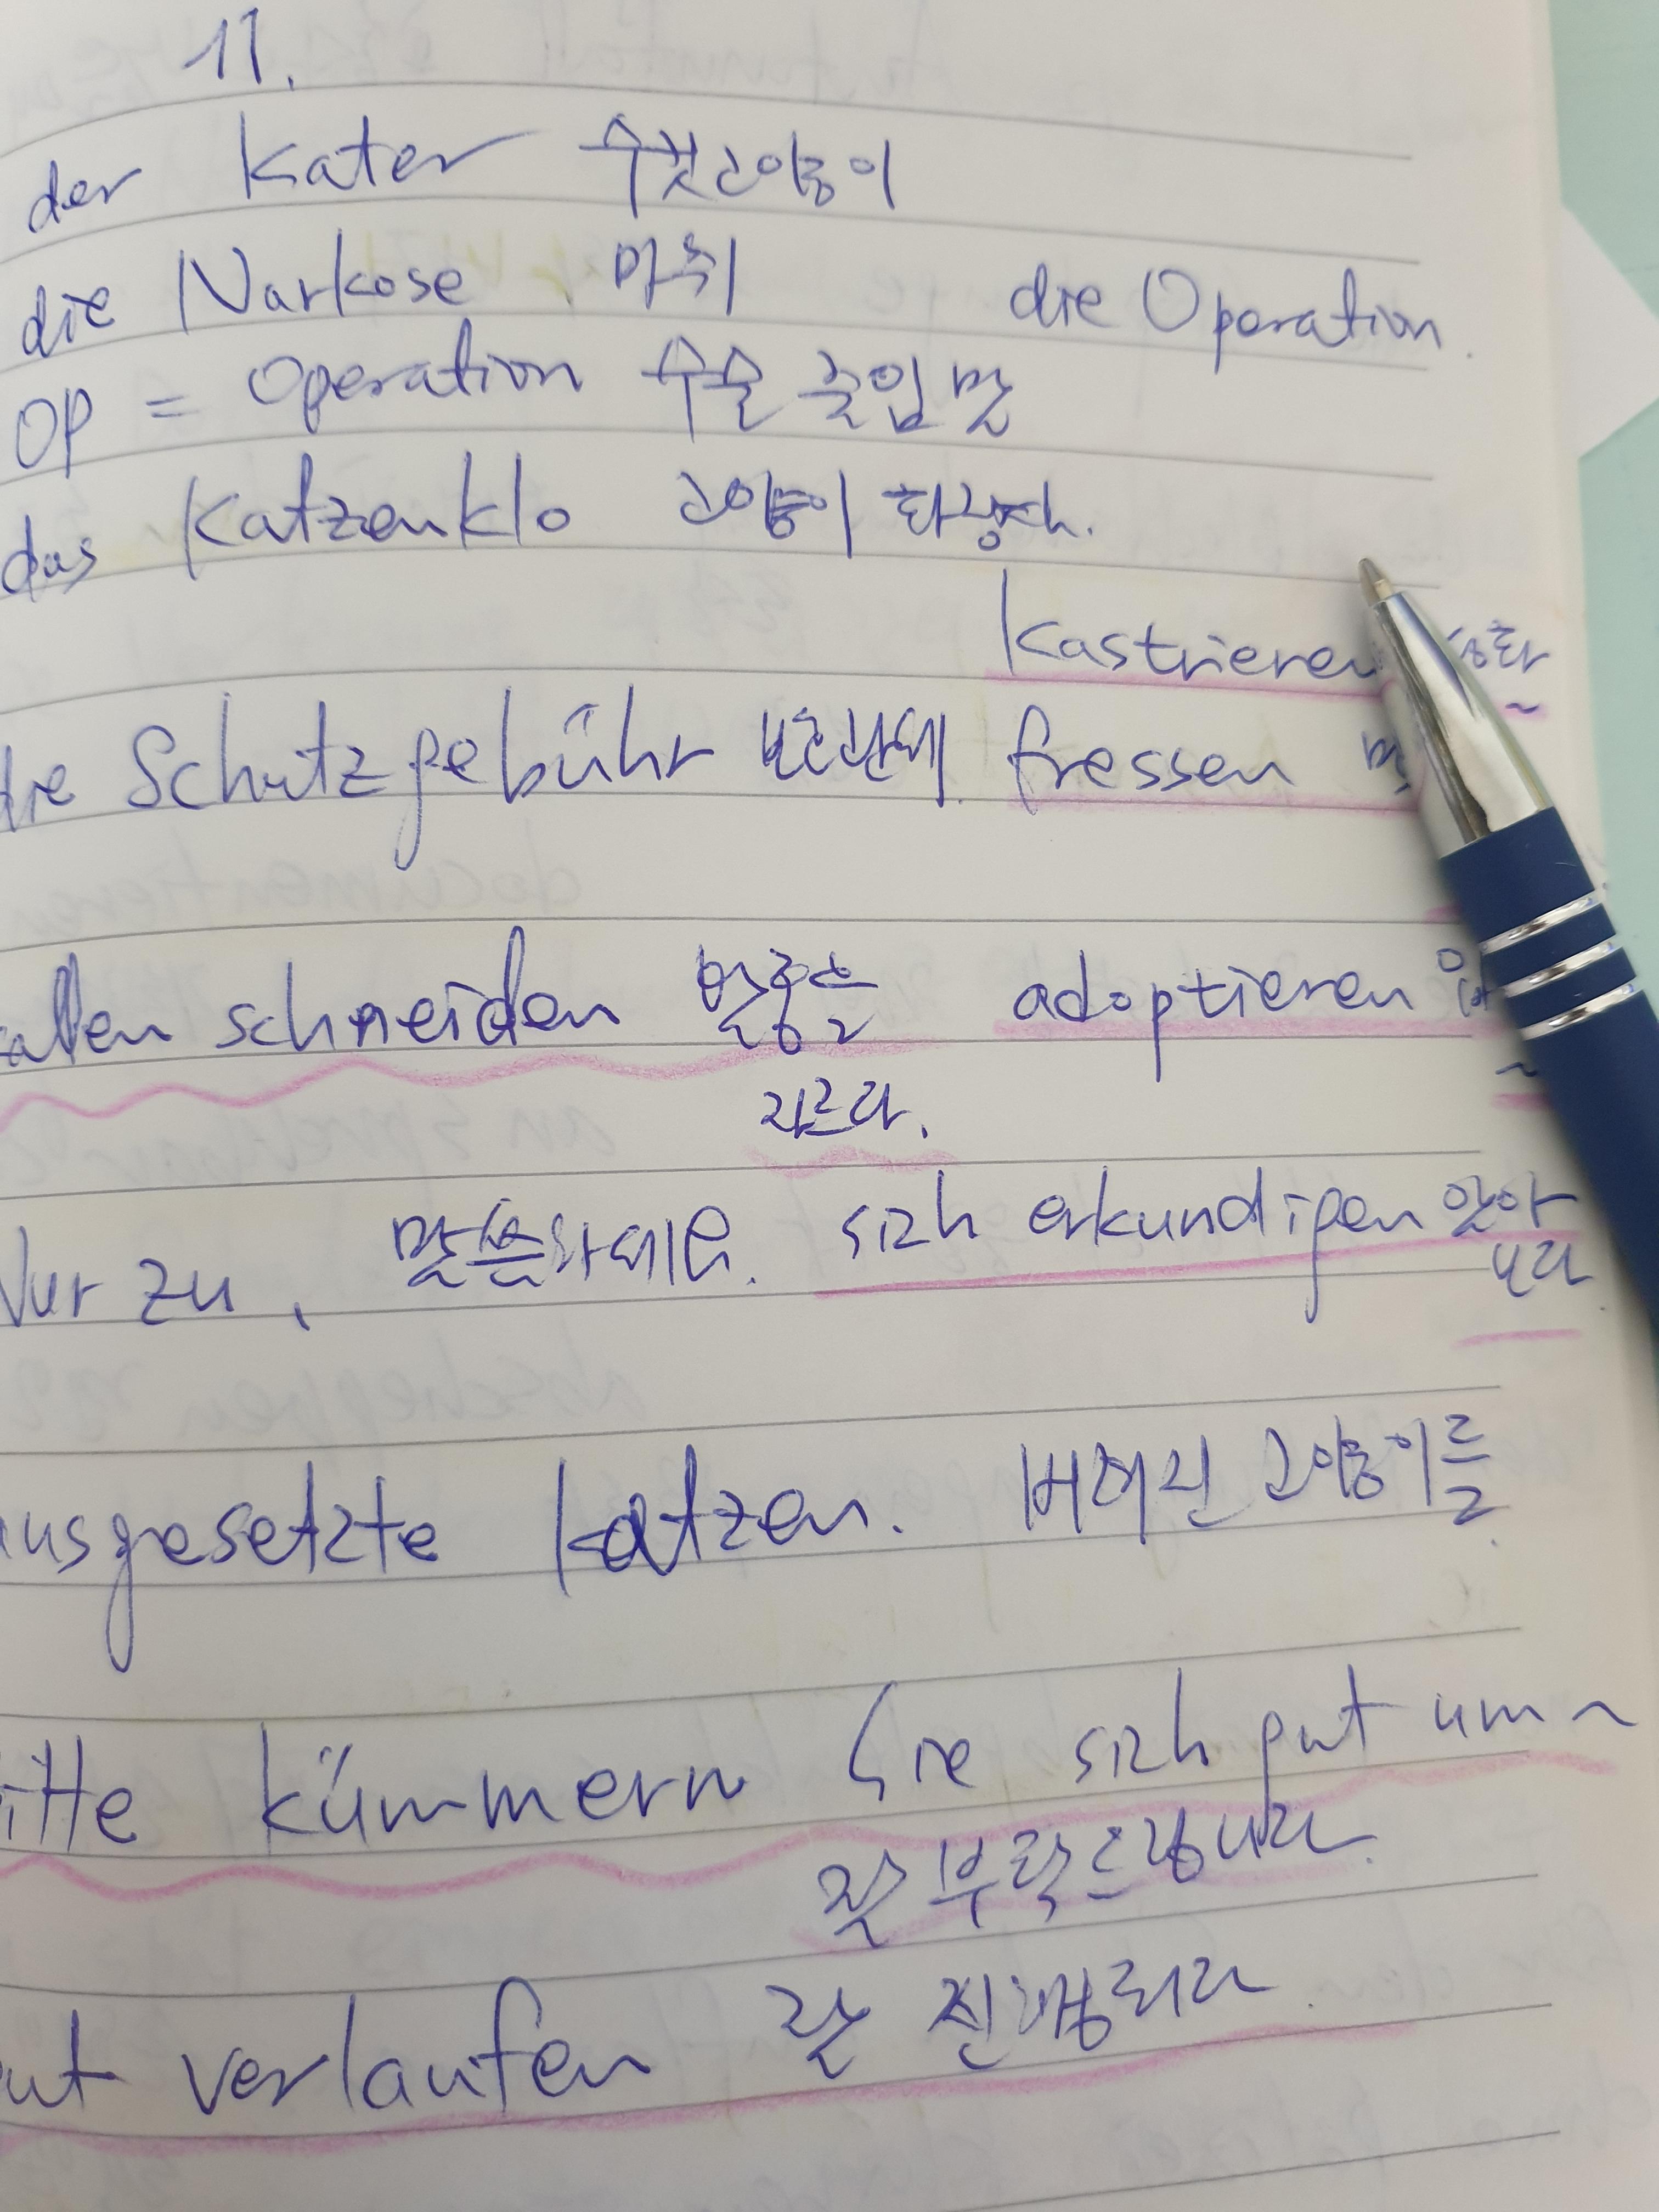 11.
der Kater 수컷고양이
die Narkose 마취 die Operation.
OP = Operation 수술 줄임말
das Katzenklo 고양이 화장실.
Kastrieren
die Schutzgebühr 보관세. fressen
schneiden 발톱을 adoptieren
자르다.
Nur zu, 말씀하세요. sich erkundigen 알아
보다.
ausgesetzte Katzen. 버려진 고양이들.
bitte kümmern Sie sich gut um ~
잘 부탁드립니다.
gut verlaufen 잘 진행되다.